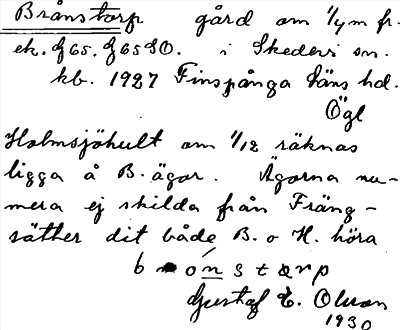 Brånstorp gård om 1/4 m fr.
ek. J 65. J 65 SO. i Skedevi sn.
kb. 1927 Finspånga läns hd.
Ögl
Holmsjöhult om 1/12 räknas
ligga å B. ägor. Ägorna nu-
mera ej skilda från Fräng-
säther dit både B. o H. höra
b o n s t a r p
Gustaf E. Olsson
1930